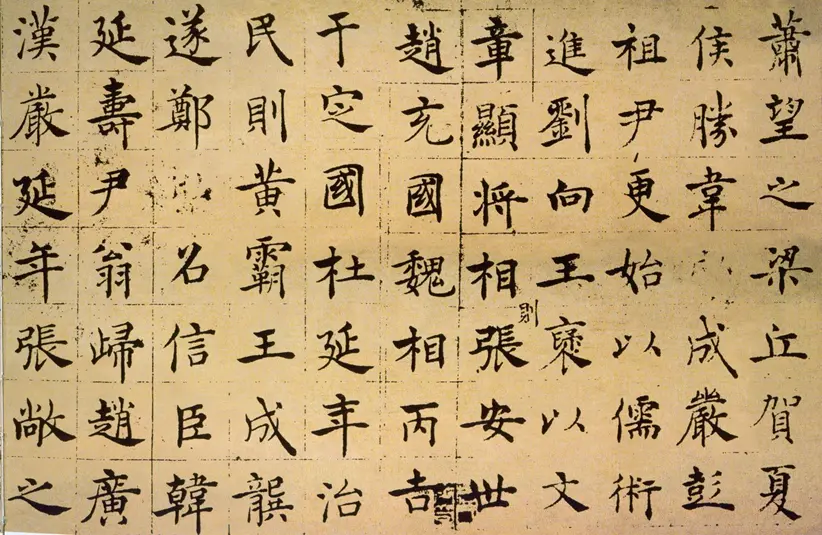 蕭望之梁丘賀夏
侯勝韋成嚴彭
祖尹更始以儒術
進劉向王褒以文
章顯將相則張安世
趙充國魏相丙吉
于定國杜延年治
民則黃霸王成龔
遂鄭召信臣韓
延壽尹翁歸趙廣
漢嚴延年張敞之